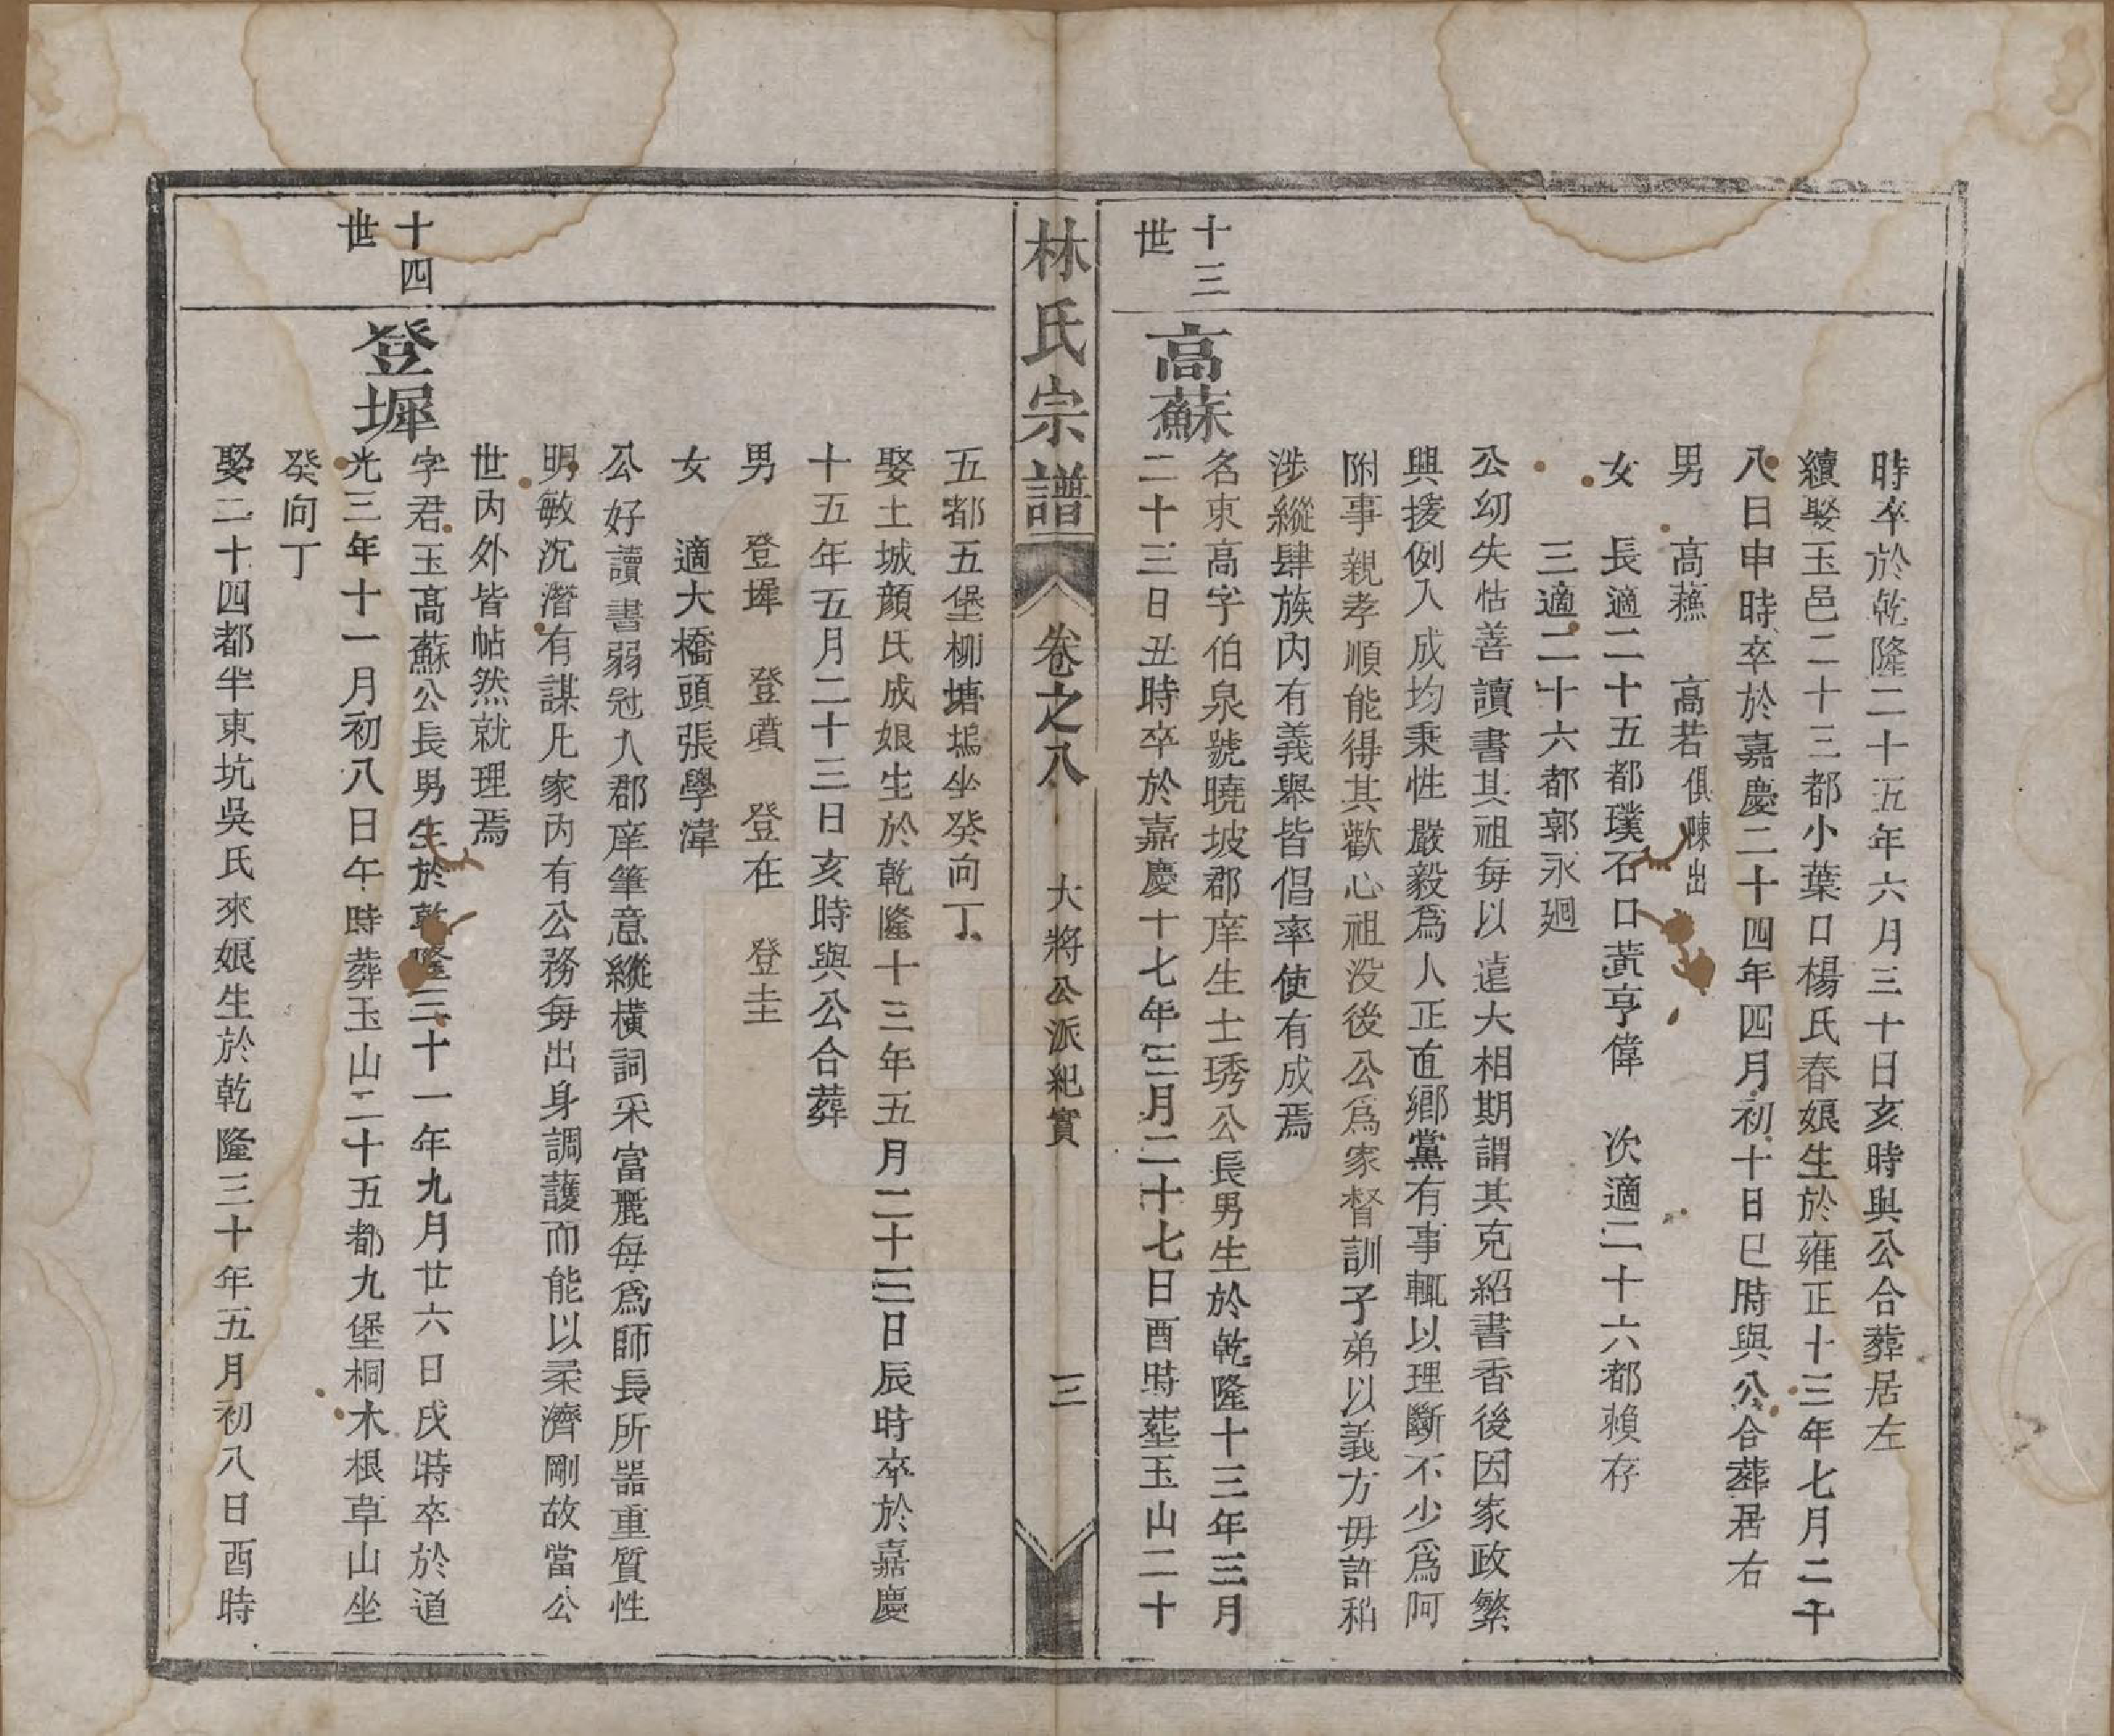 時卒於乾隆二十五年六月三十日亥時與公合葬居左
續娶玉邑二十三都小葉口楊氏春娘生於雍正十三年七月二十
八日申時卒於嘉慶二十四年四月初十日巳時與公合葬居右
男　高蘓　高若俱陳出
女　長適二十五都璞石口黃亨偉　次適二十六都賴存
三適二十六都郭永廻
公幼失怙善讀書其祖每以遠大相期謂其克紹書香後因家政繁
興援例入成均秉性嚴毅爲人正直鄉黨有事輒以理斷不少爲阿
附事親孝順能得其歡心祖没後公爲家督訓子弟以義方毋許稍
涉縱肆族內有義舉皆倡率使有成焉
十三世
高蘇
名東高字伯泉號曉坡郡庠生士琇公長男生於乾隆十三年三月
二十三日丑時卒於嘉慶十七年三月二十七日酉時塟玉山二十
林氏宗譜　卷之八　大將公派紀實　三
五都五堡柳塘塢坐癸向丁
娶土城顔氏成娘生於乾隆十三年五月二十三日辰時卒於嘉慶
十五年五月二十三日亥時與公合葬
男　登墀　登墳　登在　登圭
女　適大橋頭張學漳
公好讀書弱冠入郡庠筆意縱橫詞采富麗每爲師長所器重質性
明敏沉潛有謀凡家內有公務每出身調護而能以柔濟剛故當公
世內外皆帖然就理焉
十四世
登墀
字君玉高蘇公長男生於乾隆三十一年九月廿六日戌時卒於道
光三年十一月初八日午時葬玉山二十五都九堡桐木根草山坐
癸向丁
娶二十四都半東坑吳氏來娘生於乾隆三十年五月初八日酉時